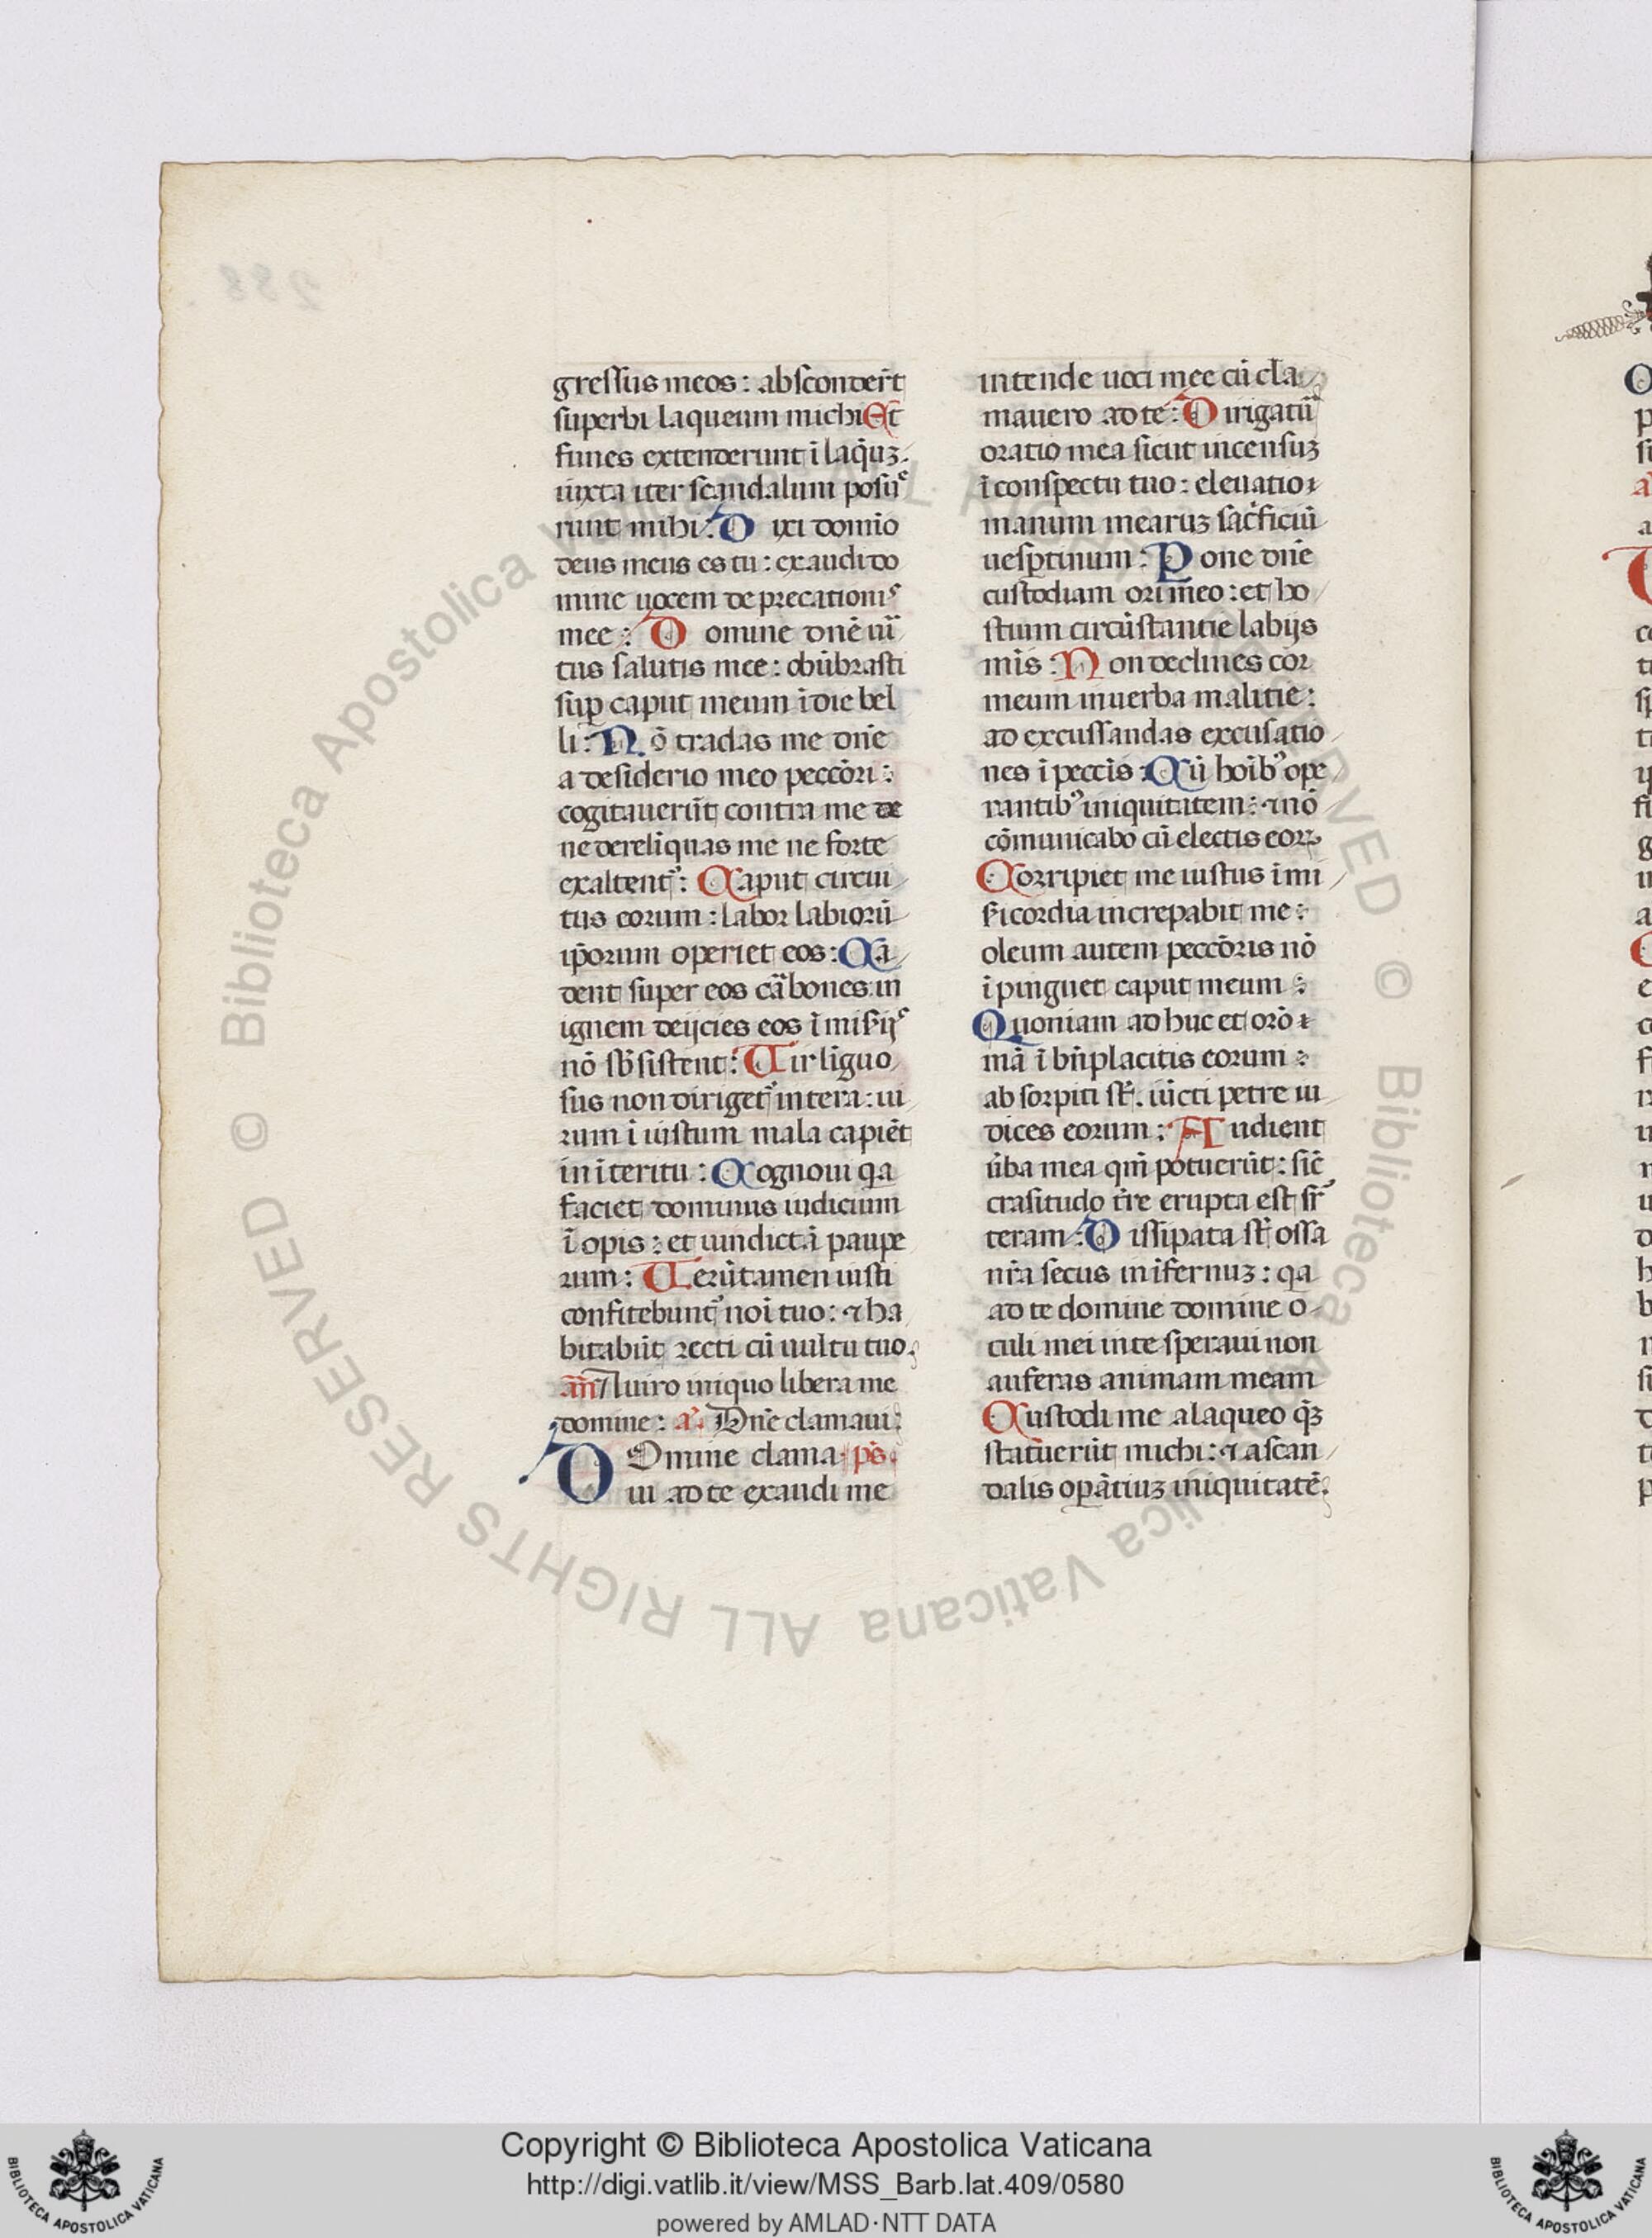 gressus meos: absconderūt
superbi laqueum michi Et
funes extenderunt ī laq̄uʒ.
iuxta iter scandalum posuᵉ
runt mihi: D ixi domīo
deus meus es tu: exaudi do
mine uocem deprecationiˢ
mee: D omine dn̄e uir̄
tus salutis mee: obūbrasti
suꝑ caput meum ī die bel
li: N ō tradas me dn̄e
a desiderio meo peccōri:
cogitauerūt contra me de
ne derelīquas me ne forte
exaltent᷑: Caput circui
tus eorum: labor labiorū
ip̄orum operiet eos: Ca
dent super eos cār̄bones in
ignem deijcies eos ī mis̄ijˢ
nō sb̄sistent: Vir līguo
sus non diriget᷑ in tera: ui
rum īiustum mala capiēt
in īteritu: Cognoui qa
faciet dominus iudicium
īopis: et uindictā paupe
rum: Verūtamen iusti
confitebunt᷑ noī tuo: ⁊ ha
bitabūt recti cū uultu tuo.
an̄ A uiro iniquo libera me
domine: a᷑. Dn̄e clamaui:
D Omine clama pō.
ui ad te exaudi me
intende uoci mee cū cla
mauero ad te: D irigatū᷑
oratio mea sicut incensuʒ
ī conspectu tuo: eleuatio
manum mearuʒ sac̄ficiū
uesꝑtinum: P one dn̄e
custodiam ori meo: et ho
stium circūstantie labijs
mīs: N on declines cor
meum in uerba malitie:
ad excussandas excusatio
nes ī pecc̄is: Cū hoīb᷒ ope
rantib᷒ iniquitatem: ⁊ nō
cōmunicabo cū electis eoꝝ
Corripiet me iustus ī mi
s̄icordia increpabit me:
oleum autem peccōris nō
īpinguet caput meum:
Quoniam adhuc et orō
mā ī bn̄placitis eorum:
absorpti st̄. iūcti petre iu
dices eorum: A udient
ūba mea qm̄ potuerūt: sic̄
crasitudo t̄re erupta est sr̄
teram: D issipata st̄ ossa
nr̄a secus īnfernuʒ: qa
ad te domine domine o
culi mei in te speraui non
auferas animam meam
Custodi me a laqueo q̄ʒ
statuerūt michi: ⁊ a scan
dalis oꝑātiuʒ iniquitatē.
Copyright © Biblioteca Apostolica Vaticana
http://digi.vatlib.it/view/MSS_Barb.lat.409/0580
powered by AMLAD·NTT DATA
© Biblioteca Apostolica Vaticana ALL RIGHTS RESERVED © Biblioteca Apostolica Vaticana ALL RIGHTS RESERVED
BIBLIOTECA APOSTOLICA VATICANA
BIBLIOTECA APOSTOLICA VATICANA